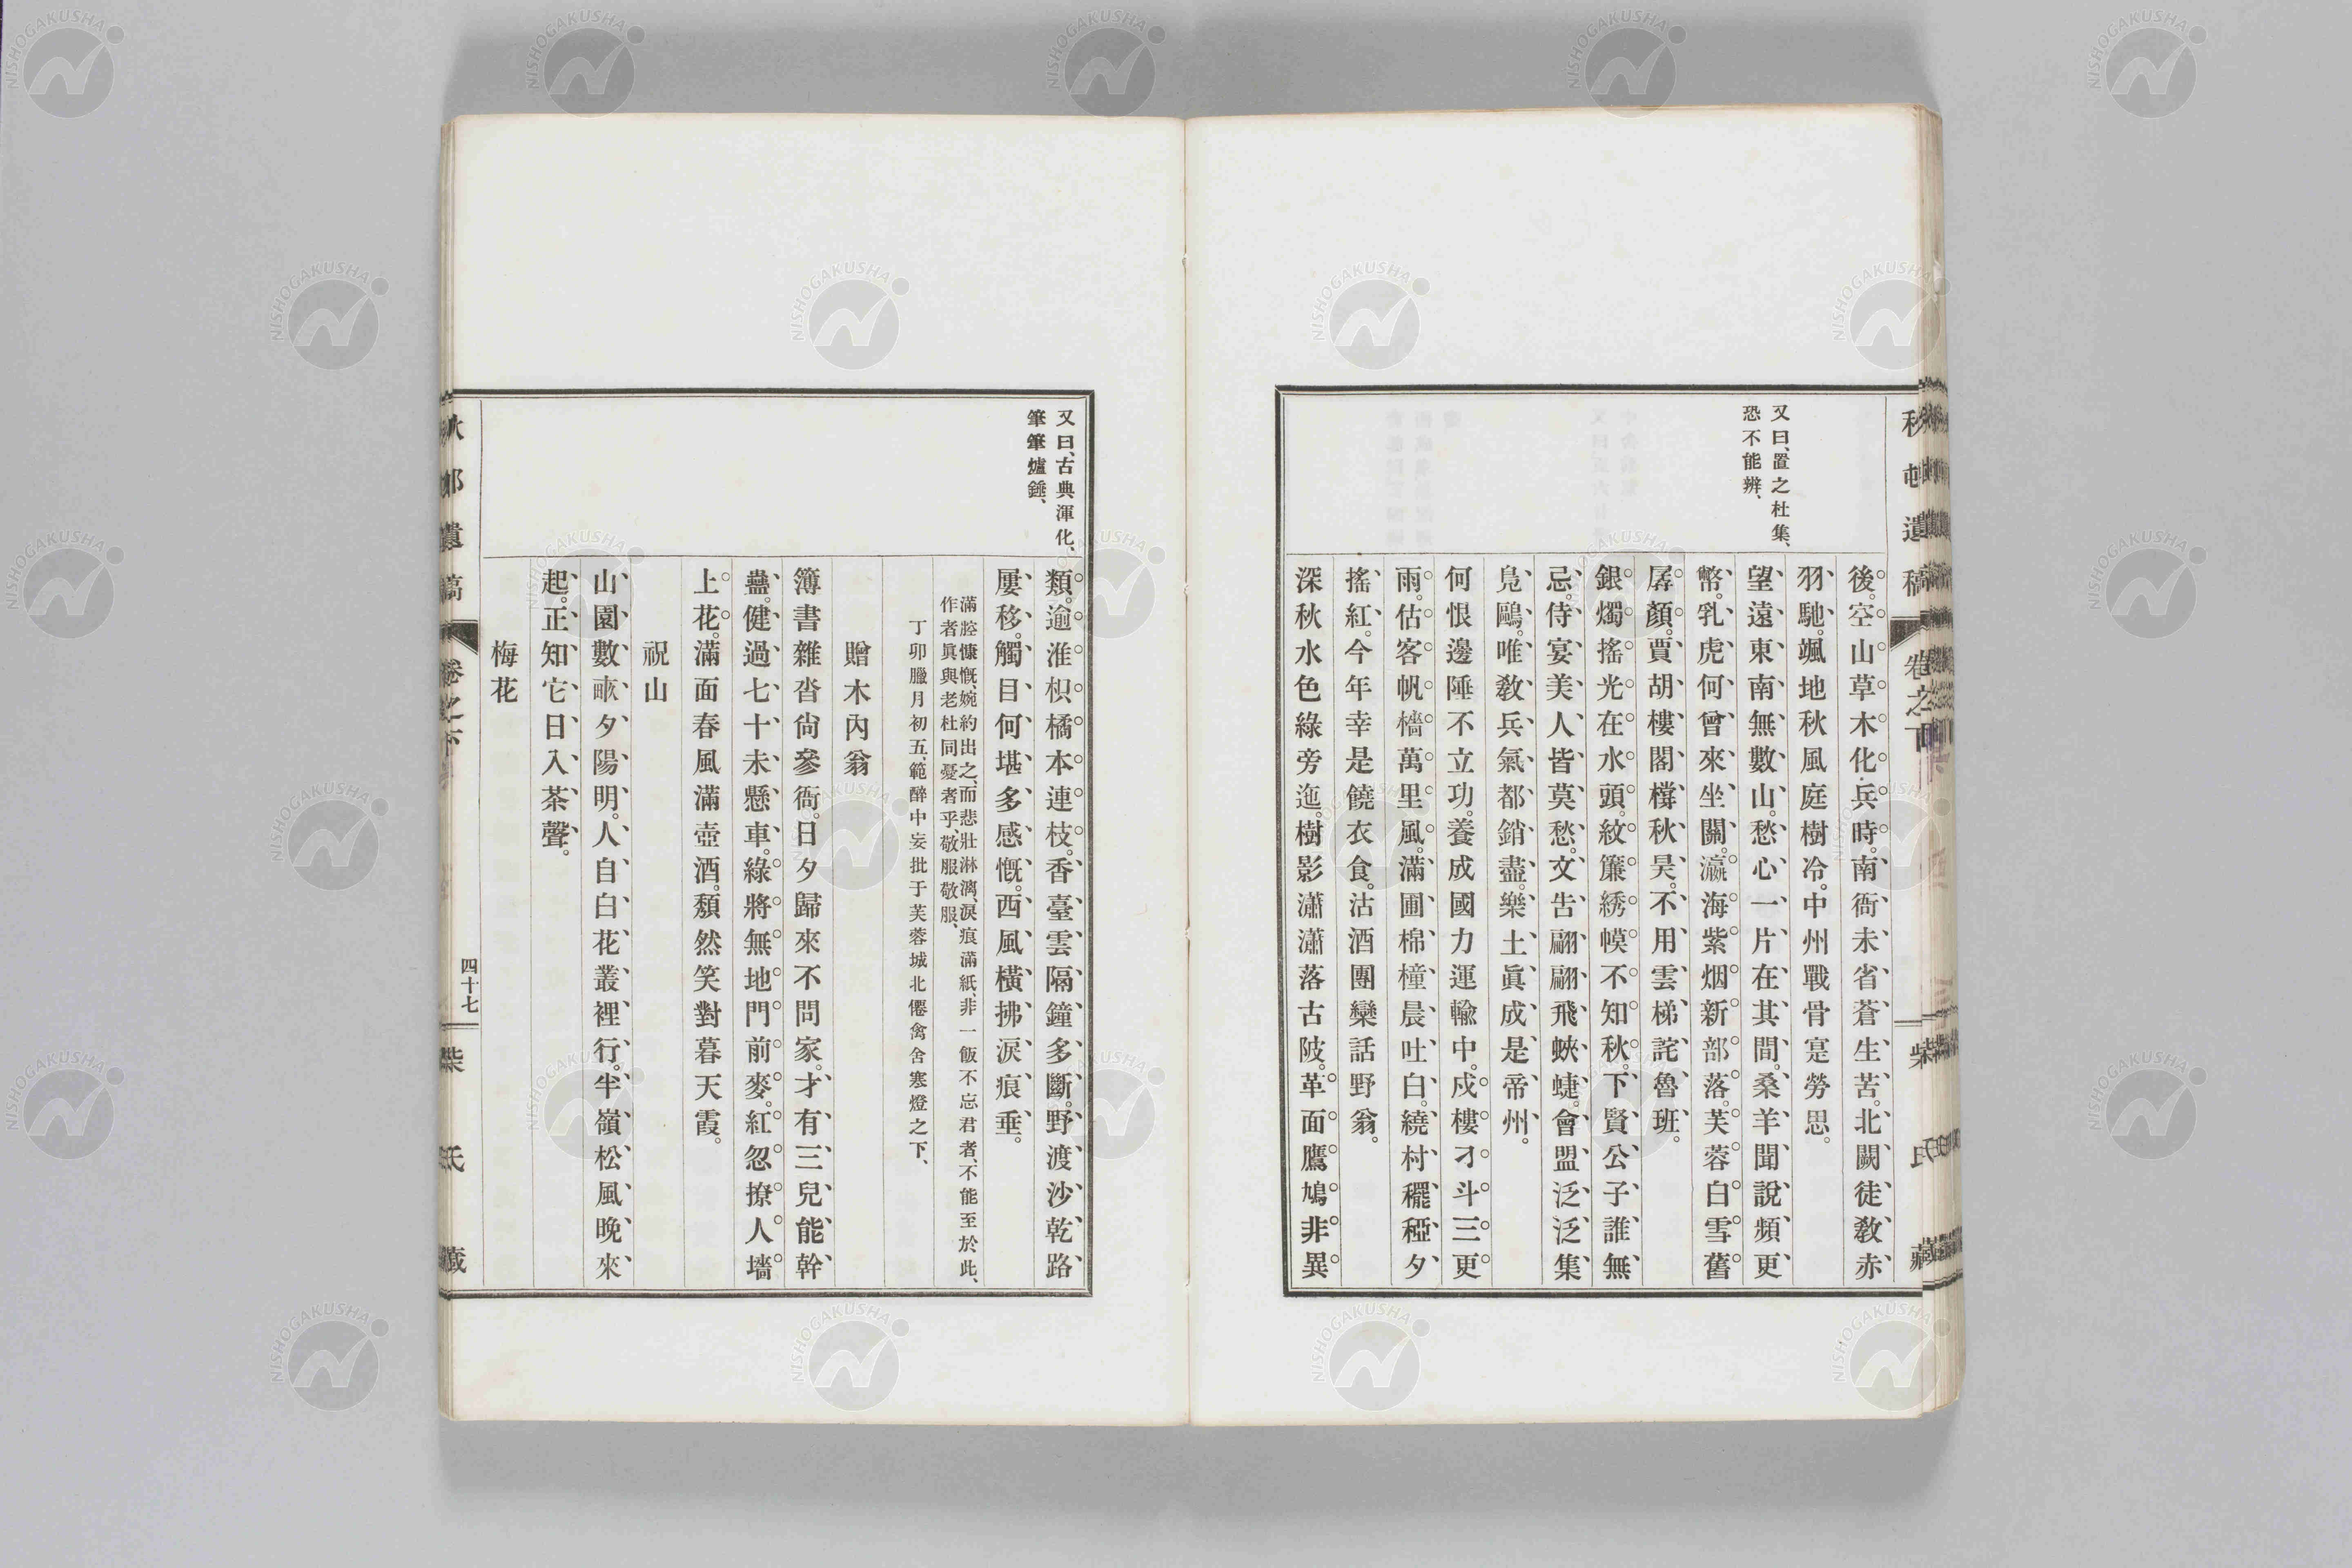 又曰、置之杜集、
恐不能辨、
後。空山草木化兵時。南衙未省蒼生苦。北闕徒敎赤
羽馳。颯地秋風庭樹冷。中州戰骨寔勞思。
望遠東南無數山。愁心一片在其間。桑羊聞說頻更
幣。乳虎何曾來坐關。瀛海紫烟新部落。芙蓉白雪舊
孱顏。賈胡樓閣橕秋昊。不用雲梯詫魯班。
銀燭搖光在水頭。紋簾綉幙不知秋。下賢公子誰無
忌。侍宴美人皆莫愁。文吿翩翩飛蛺蜨。會盟泛泛集
鳧鷗。唯敎兵氣都銷盡。樂土眞成是帝州。
何恨邊陲不立功。養成國力運輸中。戍樓刁斗三更
雨。估客帆檣萬里風。滿圃棉橦晨吐白。繞村䆉稏夕
搖紅。今年幸是饒衣食。沽酒團欒話野翁。
深秋水色綠旁迤。樹影瀟瀟落古陂。革面鷹鳩非異
秋邨遺稿
卷之下
柴氏藏
又曰、古典渾化、
筆筆爐錘、
類。逾淮枳橘本連枝。香臺雲隔鐘多斷。野渡沙乾路
屢移。觸目何堪多感慨。西風橫拂淚痕垂。
滿腔慷慨、婉約出之、而悲壯淋漓、淚痕滿紙、非一飯不忘君者、不能至於此、
作者眞與老杜同憂者乎、敬服敬服、
丁卯臘月初五、範醉中妄批于芙蓉城北僊禽舍寒燈之下、
贈木內翁
簿書雜沓尙參衙。日夕歸來不問家。才有三兒能幹
蠱。健過七十未懸車。綠將無地門前麥。紅忽撩人墻
上花。滿面春風滿壺酒。頹然笑對暮天霞。
祝山
山園數畝夕陽明。人自白花叢裡行。半嶺松風晚來
起。正知它日入茶聲。
梅花
秋邨遺稿
卷之下
四十七
柴氏藏